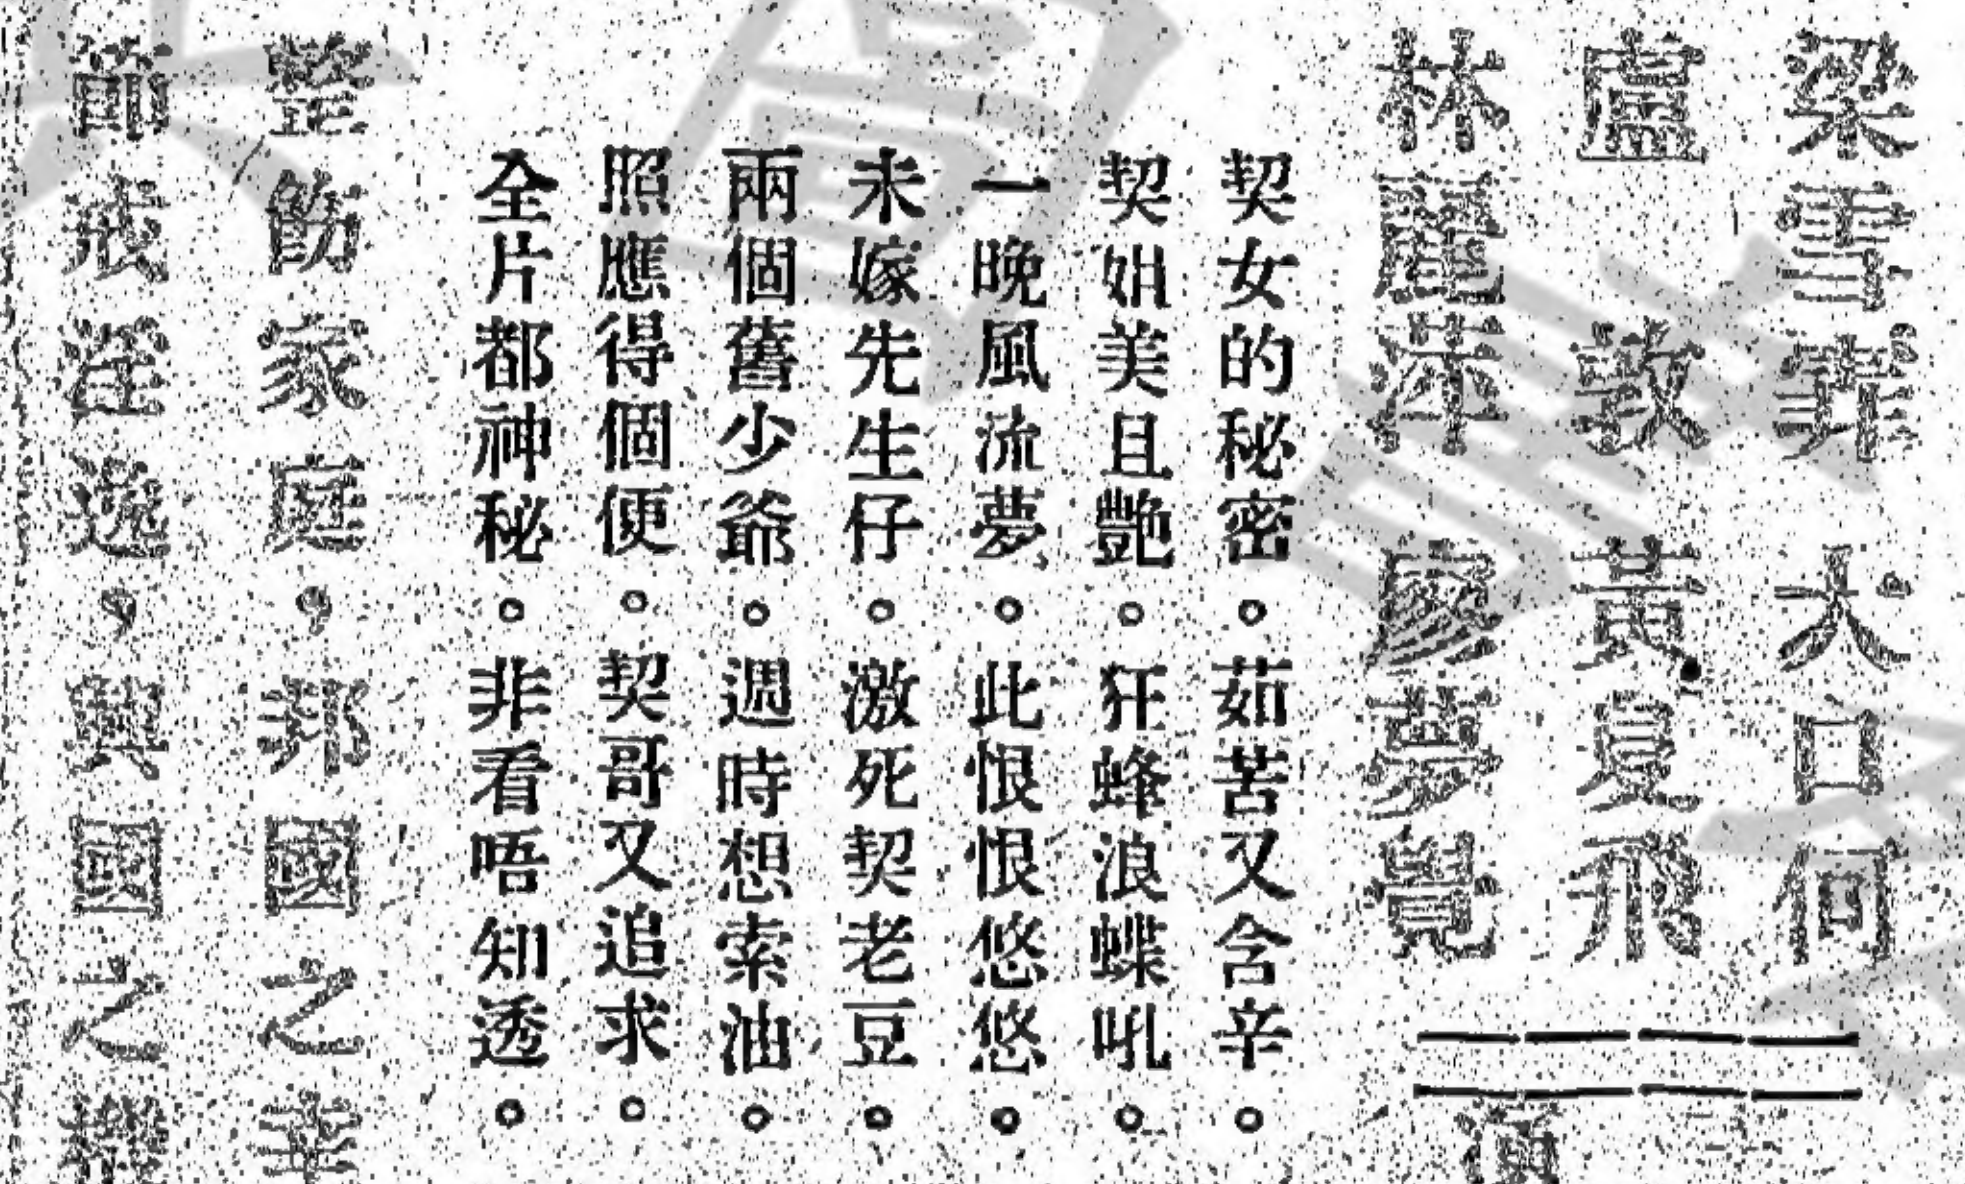 梁雪霏 大口何
盧敦 黃曼飛
林麗萍 廖夢覺
演
契女的秘密。茹苦又含辛。
契姐美且艷。狂蜂浪蝶吼。
一晚風流夢。此恨恨悠悠。
未嫁先生仔。激死契老豆。
兩個舊少爺。週時想索油。
照應得個便。契哥又追求。
全片都神秘。非看唔知透。
整飭家庭，邦國之幸
節戒淫逸，興國之機